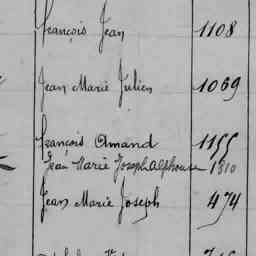 François Jean 1108
Jean Marie Julien 1069
François Amand 1155
Jean Marie Joseph Alphonse 1310
Jean Marie Joseph 474